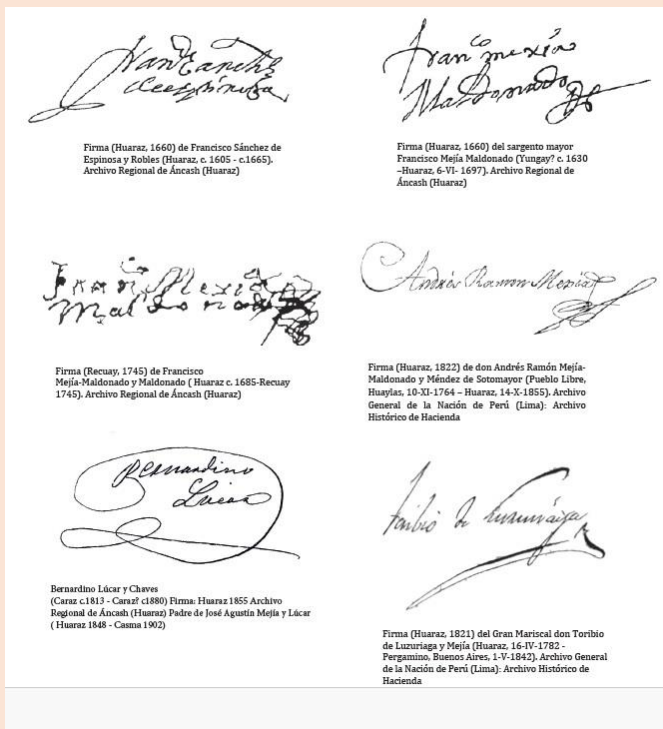 Firma (Huaraz, 1660) de Francisco Sánchez de
Espinosa y Robles (Huaraz, c. 1605 - c.1665).
Archivo Regional de Áncash (Huaraz)
Franco mexia
Maldonado
Firma (Huaraz, 1660) del sargento mayor
Francisco Mejía Maldonado (Yungay? c. 1630
–Huaraz, 6-VI- 1697). Archivo Regional de
Áncash (Huaraz)
Franco Mexia
Maldonado
Firma (Recuay, 1745) de Francisco
Mejía-Maldonado y Maldonado ( Huaraz c. 1685-Recuay
1745). Archivo Regional de Áncash (Huaraz)
Andrés Ramon Mexia
Firma (Huaraz, 1822) de don Andrés Ramón Mejía-
Maldonado y Méndez de Sotomayor (Pueblo Libre,
Huaylas, 10-XI-1764 – Huaraz, 14-X-1855). Archivo
General de la Nación de Perú (Lima): Archivo
Histórico de Hacienda
Bernardino
Lucar
Bernardino Lúcar y Chaves
(Caraz c.1813 - Caraz? c1880) Firma: Huaraz 1855 Archivo
Regional de Áncash (Huaraz) Padre de José Agustín Mejía y Lúcar
( Huaraz 1848 - Casma 1902)
Toribio de Luzuriaga
Firma (Huaraz, 1821) del Gran Mariscal don Toribio
de Luzuriaga y Mejía (Huaraz, 16-IV-1782 -
Pergamino, Buenos Aires, 1-V-1842). Archivo General
de la Nación de Perú (Lima): Archivo Histórico de
Hacienda